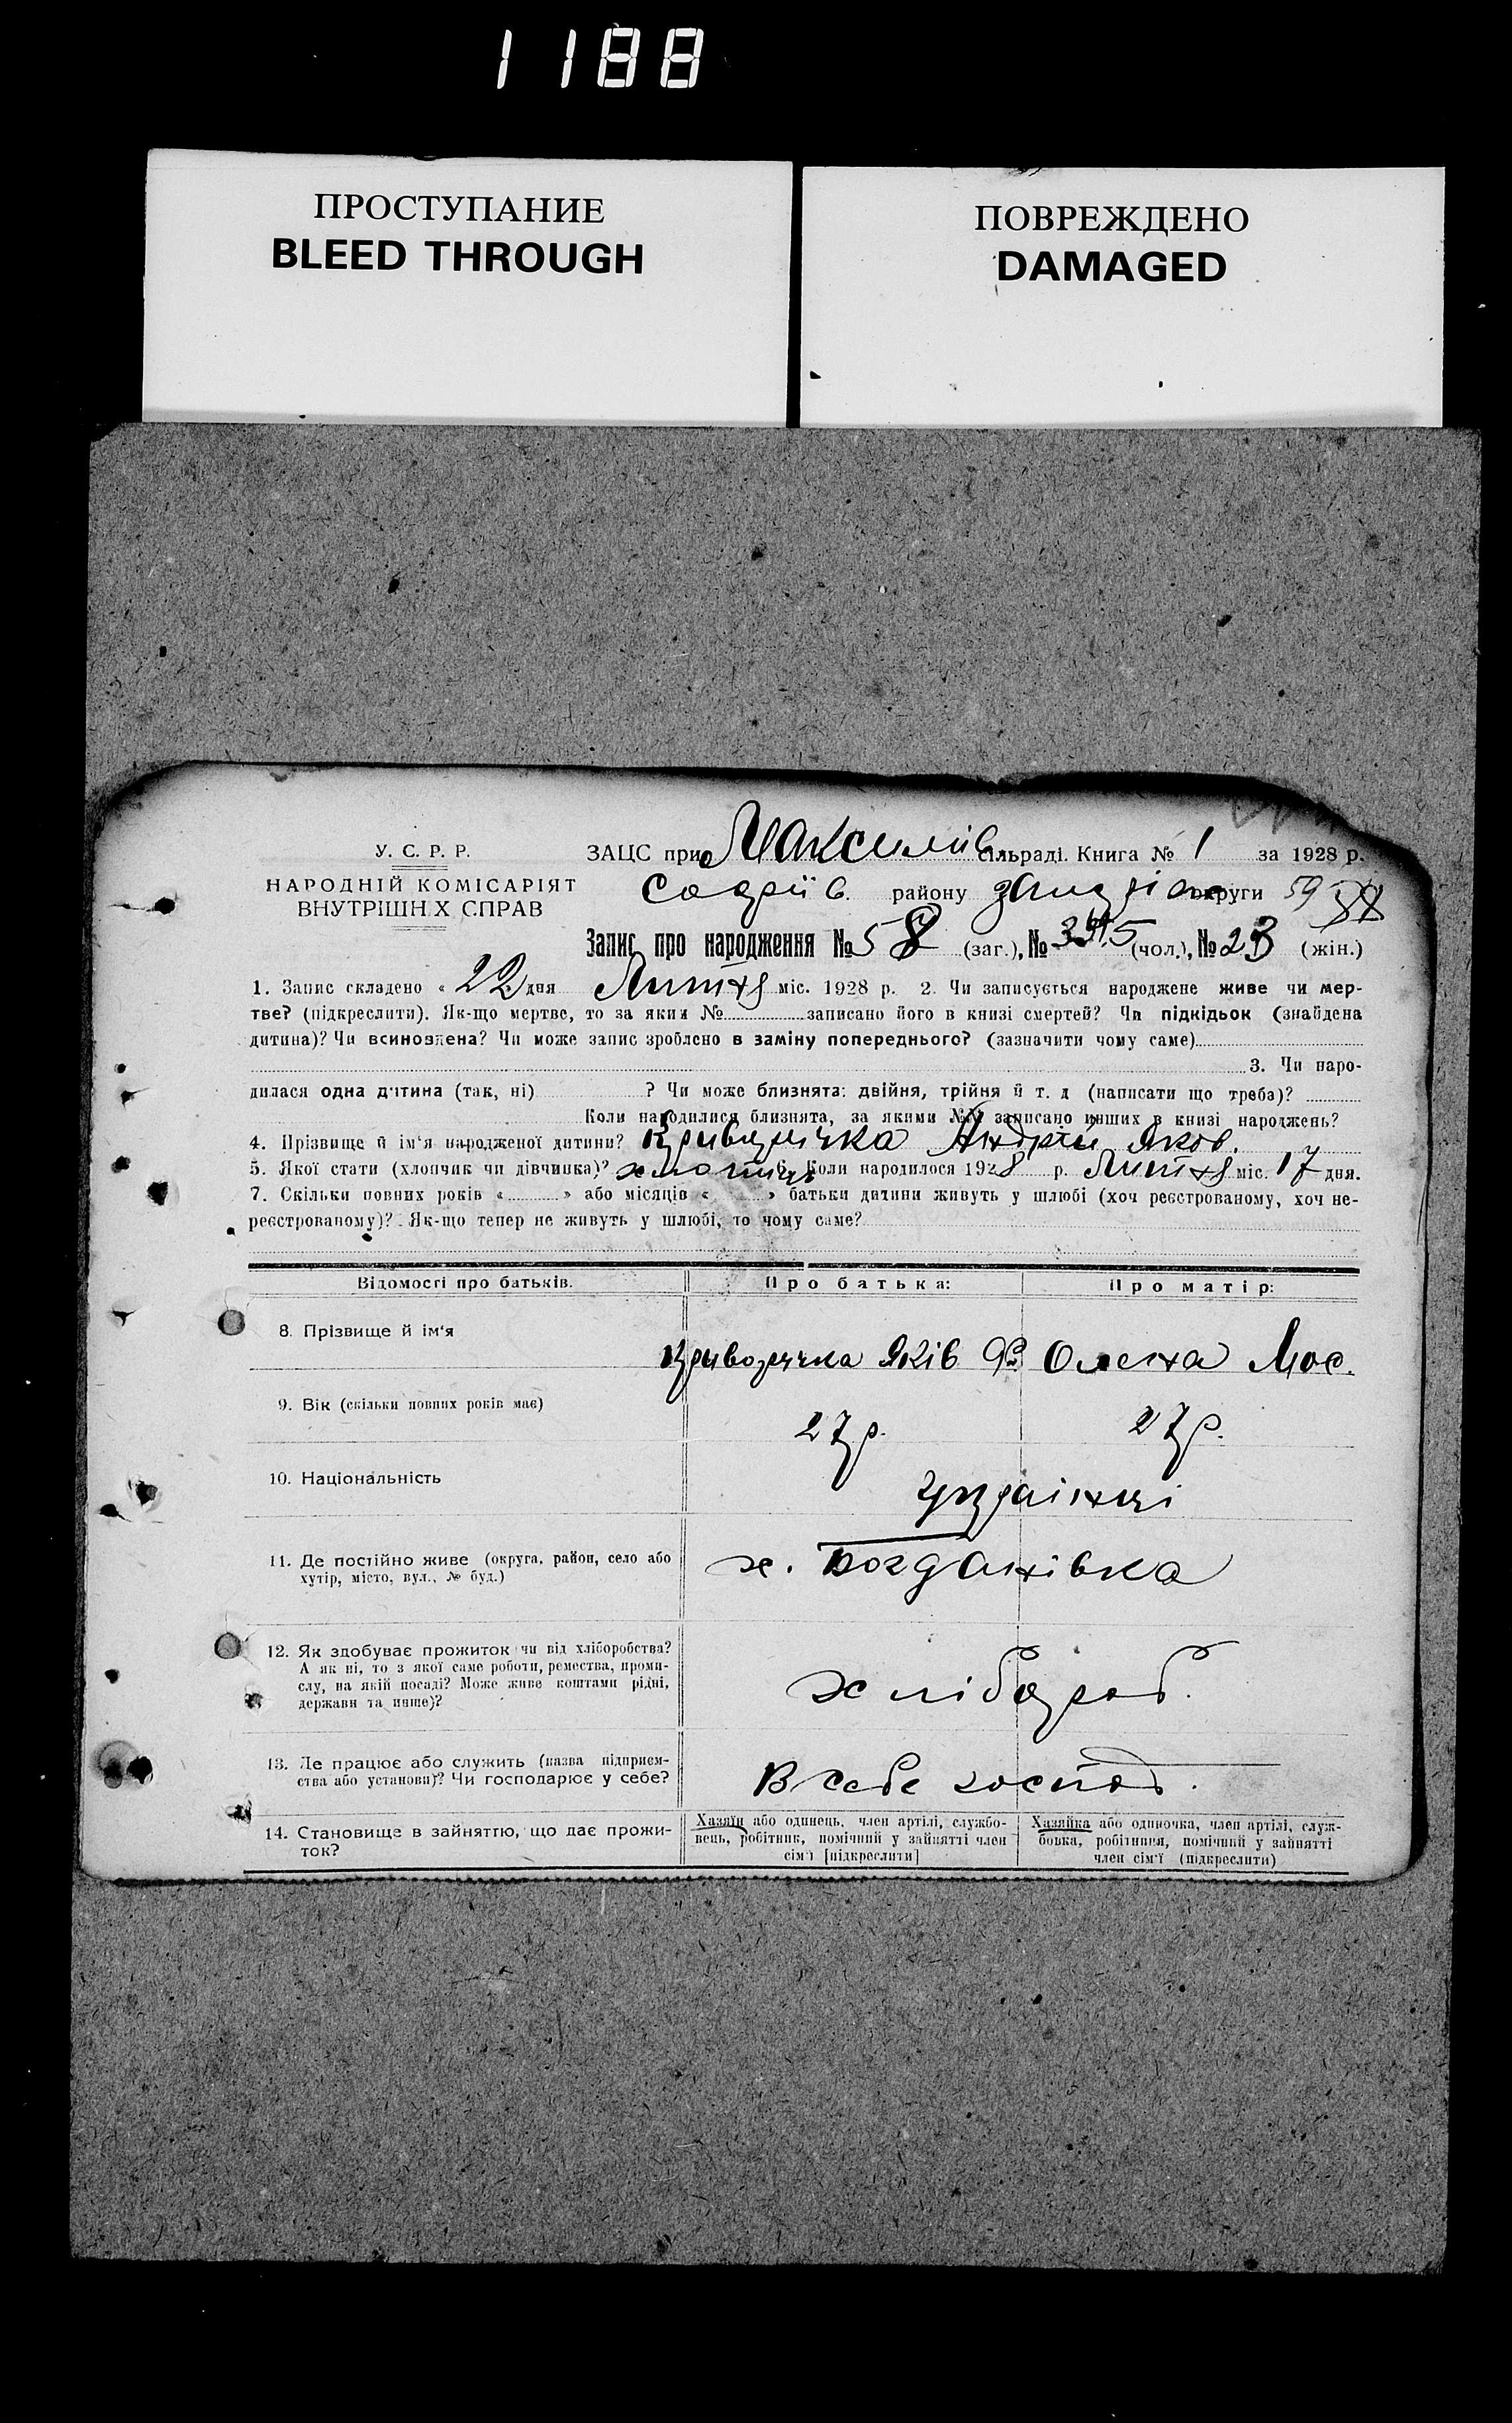 1188
ПРОСТУПАНИЕ
BLEED THROUGH
ПОВРЕЖДЕНО
DAMAGED
У. С. Р. Р.
НАРОДНІЙ КОМІСАРІЯТ
ВНУТРІШН Х СПРАВ
ЗАЦС при Максимів сільраді. Книга № 1 за 1928 р.
району округи 59
Запис про народження № 58 (заг.), № (чол.), № 23 (жін.)
1. Запис складено « 22 дня Лютня міс. 1928 р. 2. Чи записується народжене живе чи мер-
тве? (підкреслити). Як-що мертве, то за яким № записано його в книзі смертей? Чи підкідьок (знайдена
дитина)? Чи всиновлена? Чи може запис зроблено в заміну попереднього? (зазначити чому саме)
3. Чи наро-
дилася одна дитина (так, ні) ? Чи може близнята: двійня, трійня й т. д (написати що треба)?
Коли народилися близнята, за якими №№ записано инших в книзі народжень?
4. Прізвище й ім'я народженої дитини? Криворучка Андрій Яков.
5. Якої стати (хлопчик чи дівчинка)? хлопчик 6. Коли народилося 1928 р. Лютня міс. 17 дня.
7. Скільки повних років « » або місяців « » батьки дитини живуть у шлюбі (хоч реєстрованому, хоч не-
реєстрованому)? Як-що тепер не живуть у шлюбі, то чому саме?
Відомості про батьків. Про батька: Про матір:
8. Прізвище й ім'я Криворучка Яків Олена Мос.
9. Вік (скільки повних років має) 27 р. 27 р.
10. Національність українці
11. Де постійно живе (округа, район, село або
хутір, місто, вул., № буд.) х. Богданівка
12. Як здобуває прожиток чи від хліборобства?
А як ні, то з якої саме роботи, ремества, проми-
слу, на якій посаді? Може живе коштами рідні,
держави та инше)? хлібороб.
13. Де працює або служить (назва підприєм-
ства або установи)? Чи господарює у себе? В себе господ.
14. Становище в зайняттю, що дає прожи-
ток?
Хазяїн або одинець, член артілі, службо-
вець, робітник, помічний у зайнятті член
сім'ї [підкреслити]
Хазяйка або одиночка, член артілі, служ-
бовка, робітниця, помічний у зайнятті
член сім'ї (підкреслити)